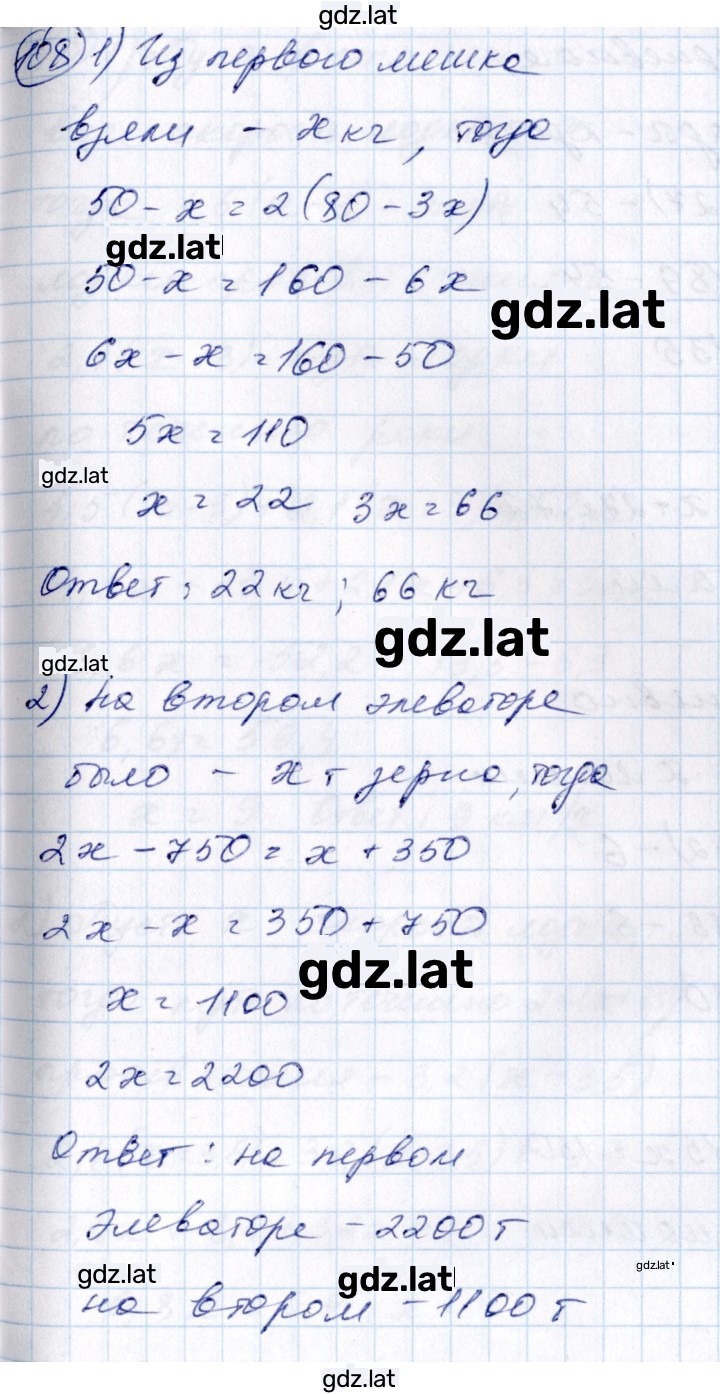 gdz.lat
108 1) Из первого мешка
взяли - х кг, тогда
50 - х = 2(80 - 3х)
gdz.lat
50 - х = 160 - 6х
gdz.lat
6х - х = 160 - 50
5х = 110
gdz.lat
х = 22 3х = 66
Ответ: 22 кг; 66 кг
gdz.lat
gdz.lat
2) На втором элеваторе
было - х т зерна, тогда
2х - 750 = х + 350
2х - х = 350 + 750
gdz.lat
х = 1100
2х = 2200
Ответ: на первом
элеваторе - 2200 т
gdz.lat
gdz.lat
gdz.lat
на втором - 1100 т
gdz.lat